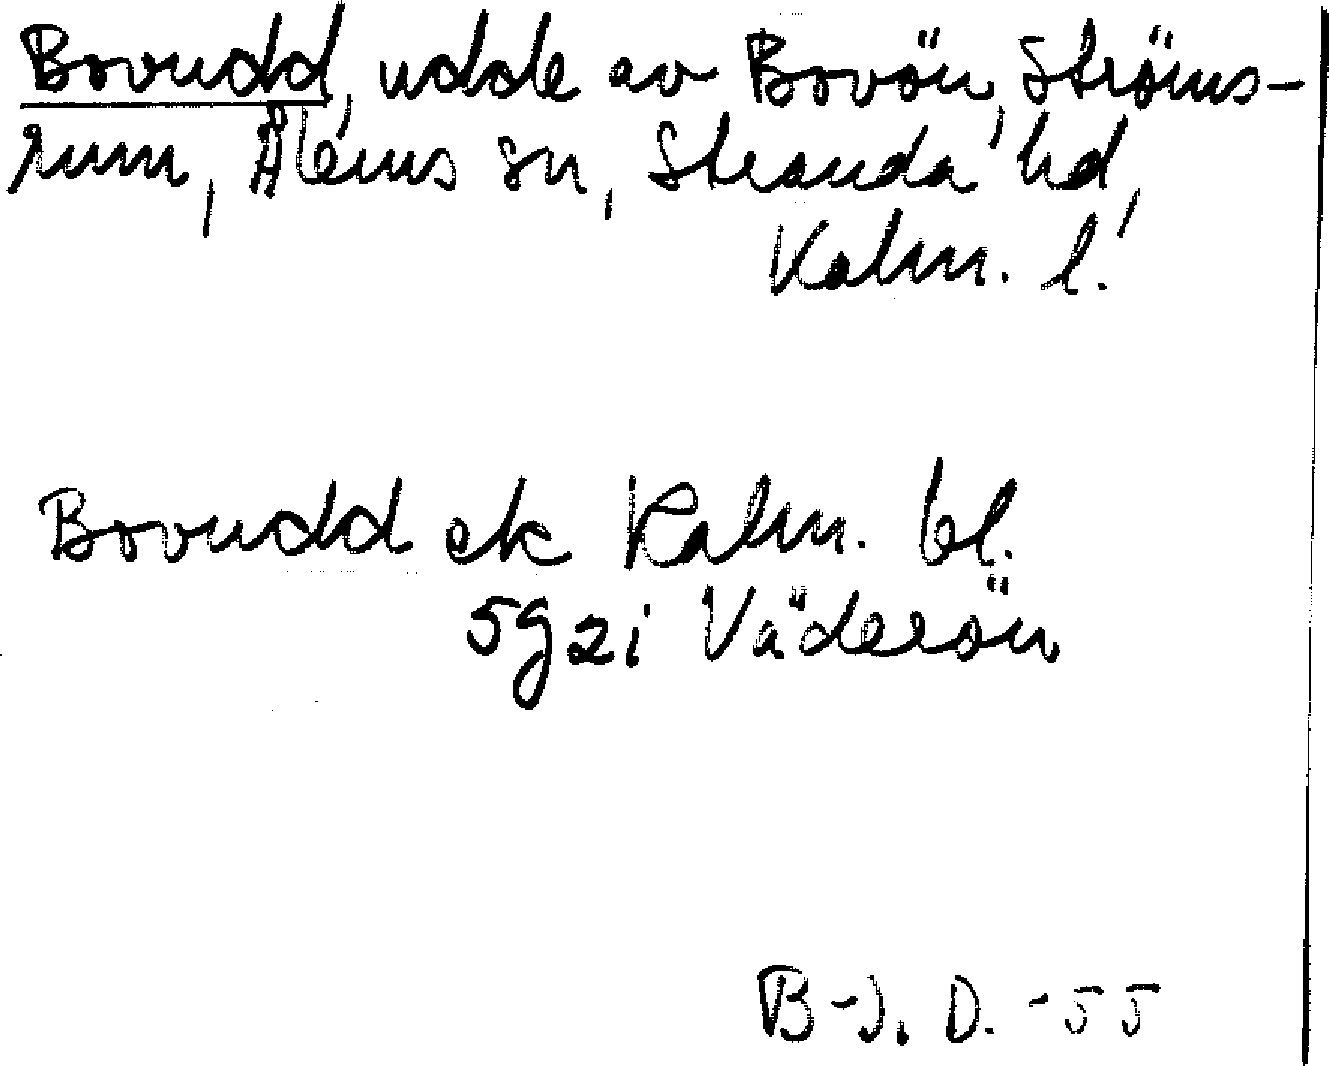 Bovudd, udde av Bovön, Ströms-
rum, Ålems sn, Stranda hd,
Kalm. l.
Bovudd ek Kalm. bl.
5g2i Väderön
B-J. D. -55